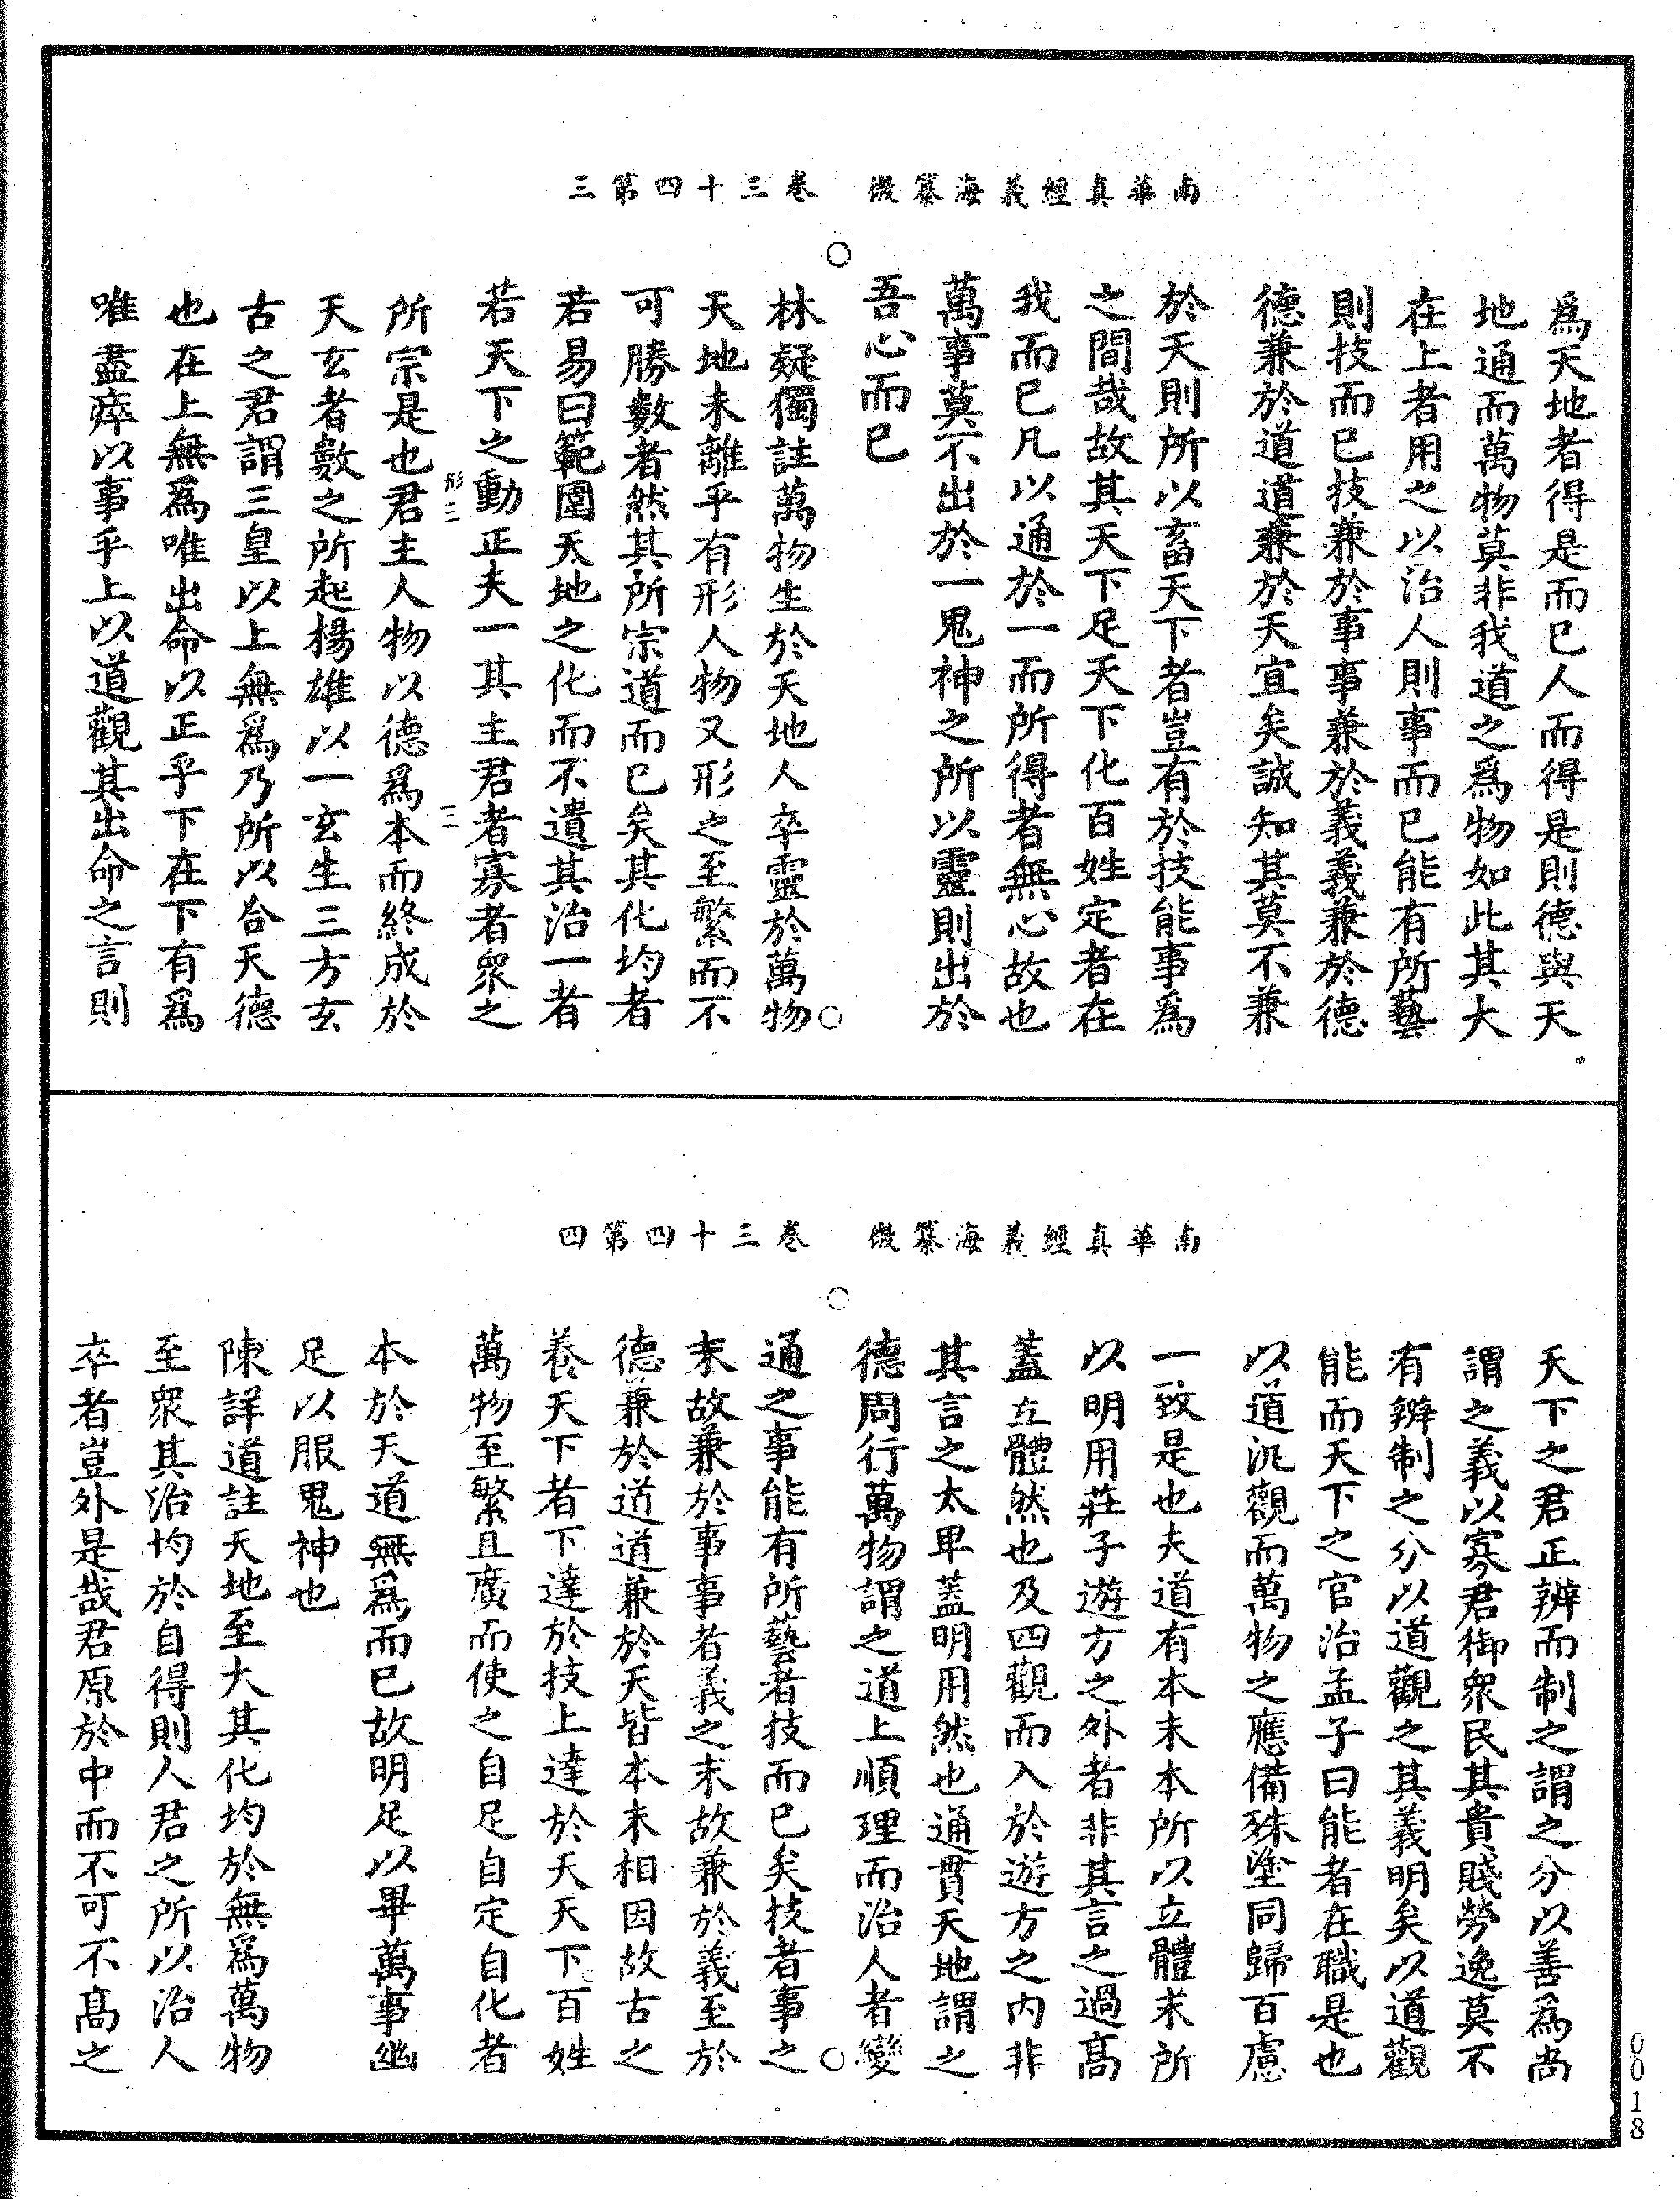 南華真經義海纂微　卷三十四第三
爲天地者得是而已人而得是則德與天
地通而萬物莫非我道之爲物如此其大
在上者用之以治人則事而已能有所藝
則技而已技兼於事事兼於義義兼於德
德兼於道道兼於天宜矣誠知其莫不兼
於天則所以畜天下者豈有於技能事爲
之間哉故其天下足天下化百姓定者在
我而已凡以通於一而所得者無心故也
萬事莫不出於一鬼神之所以靈則出於
吾心而已
林疑獨註萬物生於天地人卒靈於萬物
天地未離乎有形人物又形之至繁而不
可勝數者然其所宗道而已矣其化均者
若易曰範圍天地之化而不遺其治一者
若天下之動正夫一其主君者寡者衆之
形三　三
所宗是也君主人物以德爲本而終成於
天玄者數之所起揚雄以一玄生三方玄
古之君謂三皇以上無爲乃所以合天德
也在上無爲唯出命以正乎下在下有爲
唯盡瘁以事乎上以道觀其出命之言則
南華真經義海纂微　卷三十四第四
天下之君正辨而制之謂之分以善爲尚
謂之義以寡君御衆民其貴賤勞逸莫不
有辨制之分以道觀之其義明矣以道觀
能而天下之官治孟子曰能者在職是也
以道汎觀而萬物之應備殊塗同歸百慮
一致是也夫道有本末本所以立體末所
以明用莊子遊方之外者非其言之過高
蓋立體然也及四觀而入於遊方之內非
其言之太卑蓋明用然也通貫天地謂之
德周行萬物謂之道上順理而治人者變
通之事能有所藝者技而已矣技者事之
末故兼於事事者義之末故兼於義至於
德兼於道道兼於天皆本末相因故古之
養天下者下達於技上達於天天下百姓
萬物至繁且廣而使之自足自定自化者
本於天道無爲而已故明足以畢萬事幽
足以服鬼神也
陳詳道註天地至大其化均於無爲萬物
至衆其治均於自得則人君之所以治人
卒者豈外是哉君原於中而不可不高之
0018